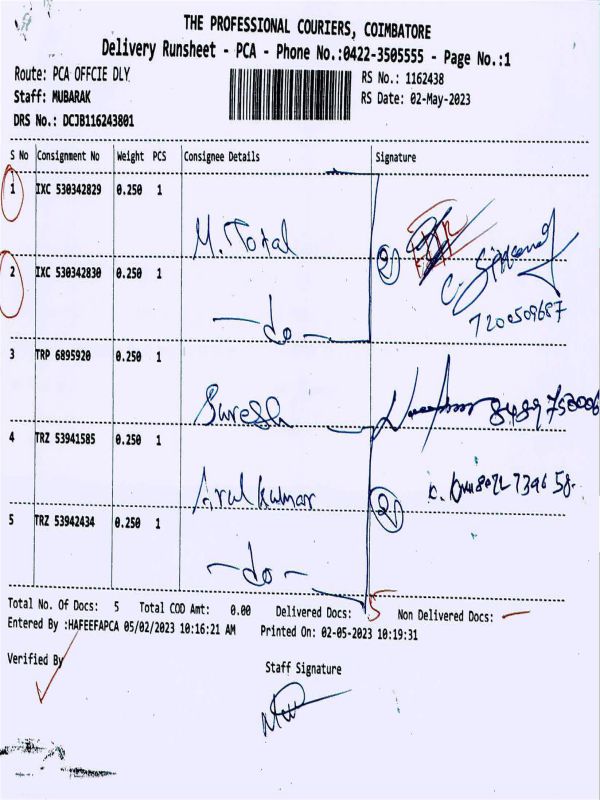 THE PROFESSIONAL COURIERS, COIMBATORE
Delivery Runsheet - PCA - Phone No.:0422-3505555 - Page No.:1
Route: PCA OFFCIE DLY
RS No.: 1162438
Staff: MUBARAK
RS Date: 02-May-2023
DRS No.: DCJB116243801
S No Consignment No Weight PCS Consignee Details Signature
1 IXC 530342829 0.250 1
M. Total
2 IXC 530342830 0.250 1 2
7200509687
- do -
3 TRP 6895920 0.250 1
Suresh
4 TRZ 53941585 0.250 1
Arul kumar 2
5 TRZ 53942434 0.250 1
- do -
Total No. Of Docs: 5 Total COD Amt: 0.00 Delivered Docs: 5 Non Delivered Docs: —
Entered By :HAFEEFAPCA 05/02/2023 10:16:21 AM Printed On: 02-05-2023 10:19:31
Verified By
Staff Signature